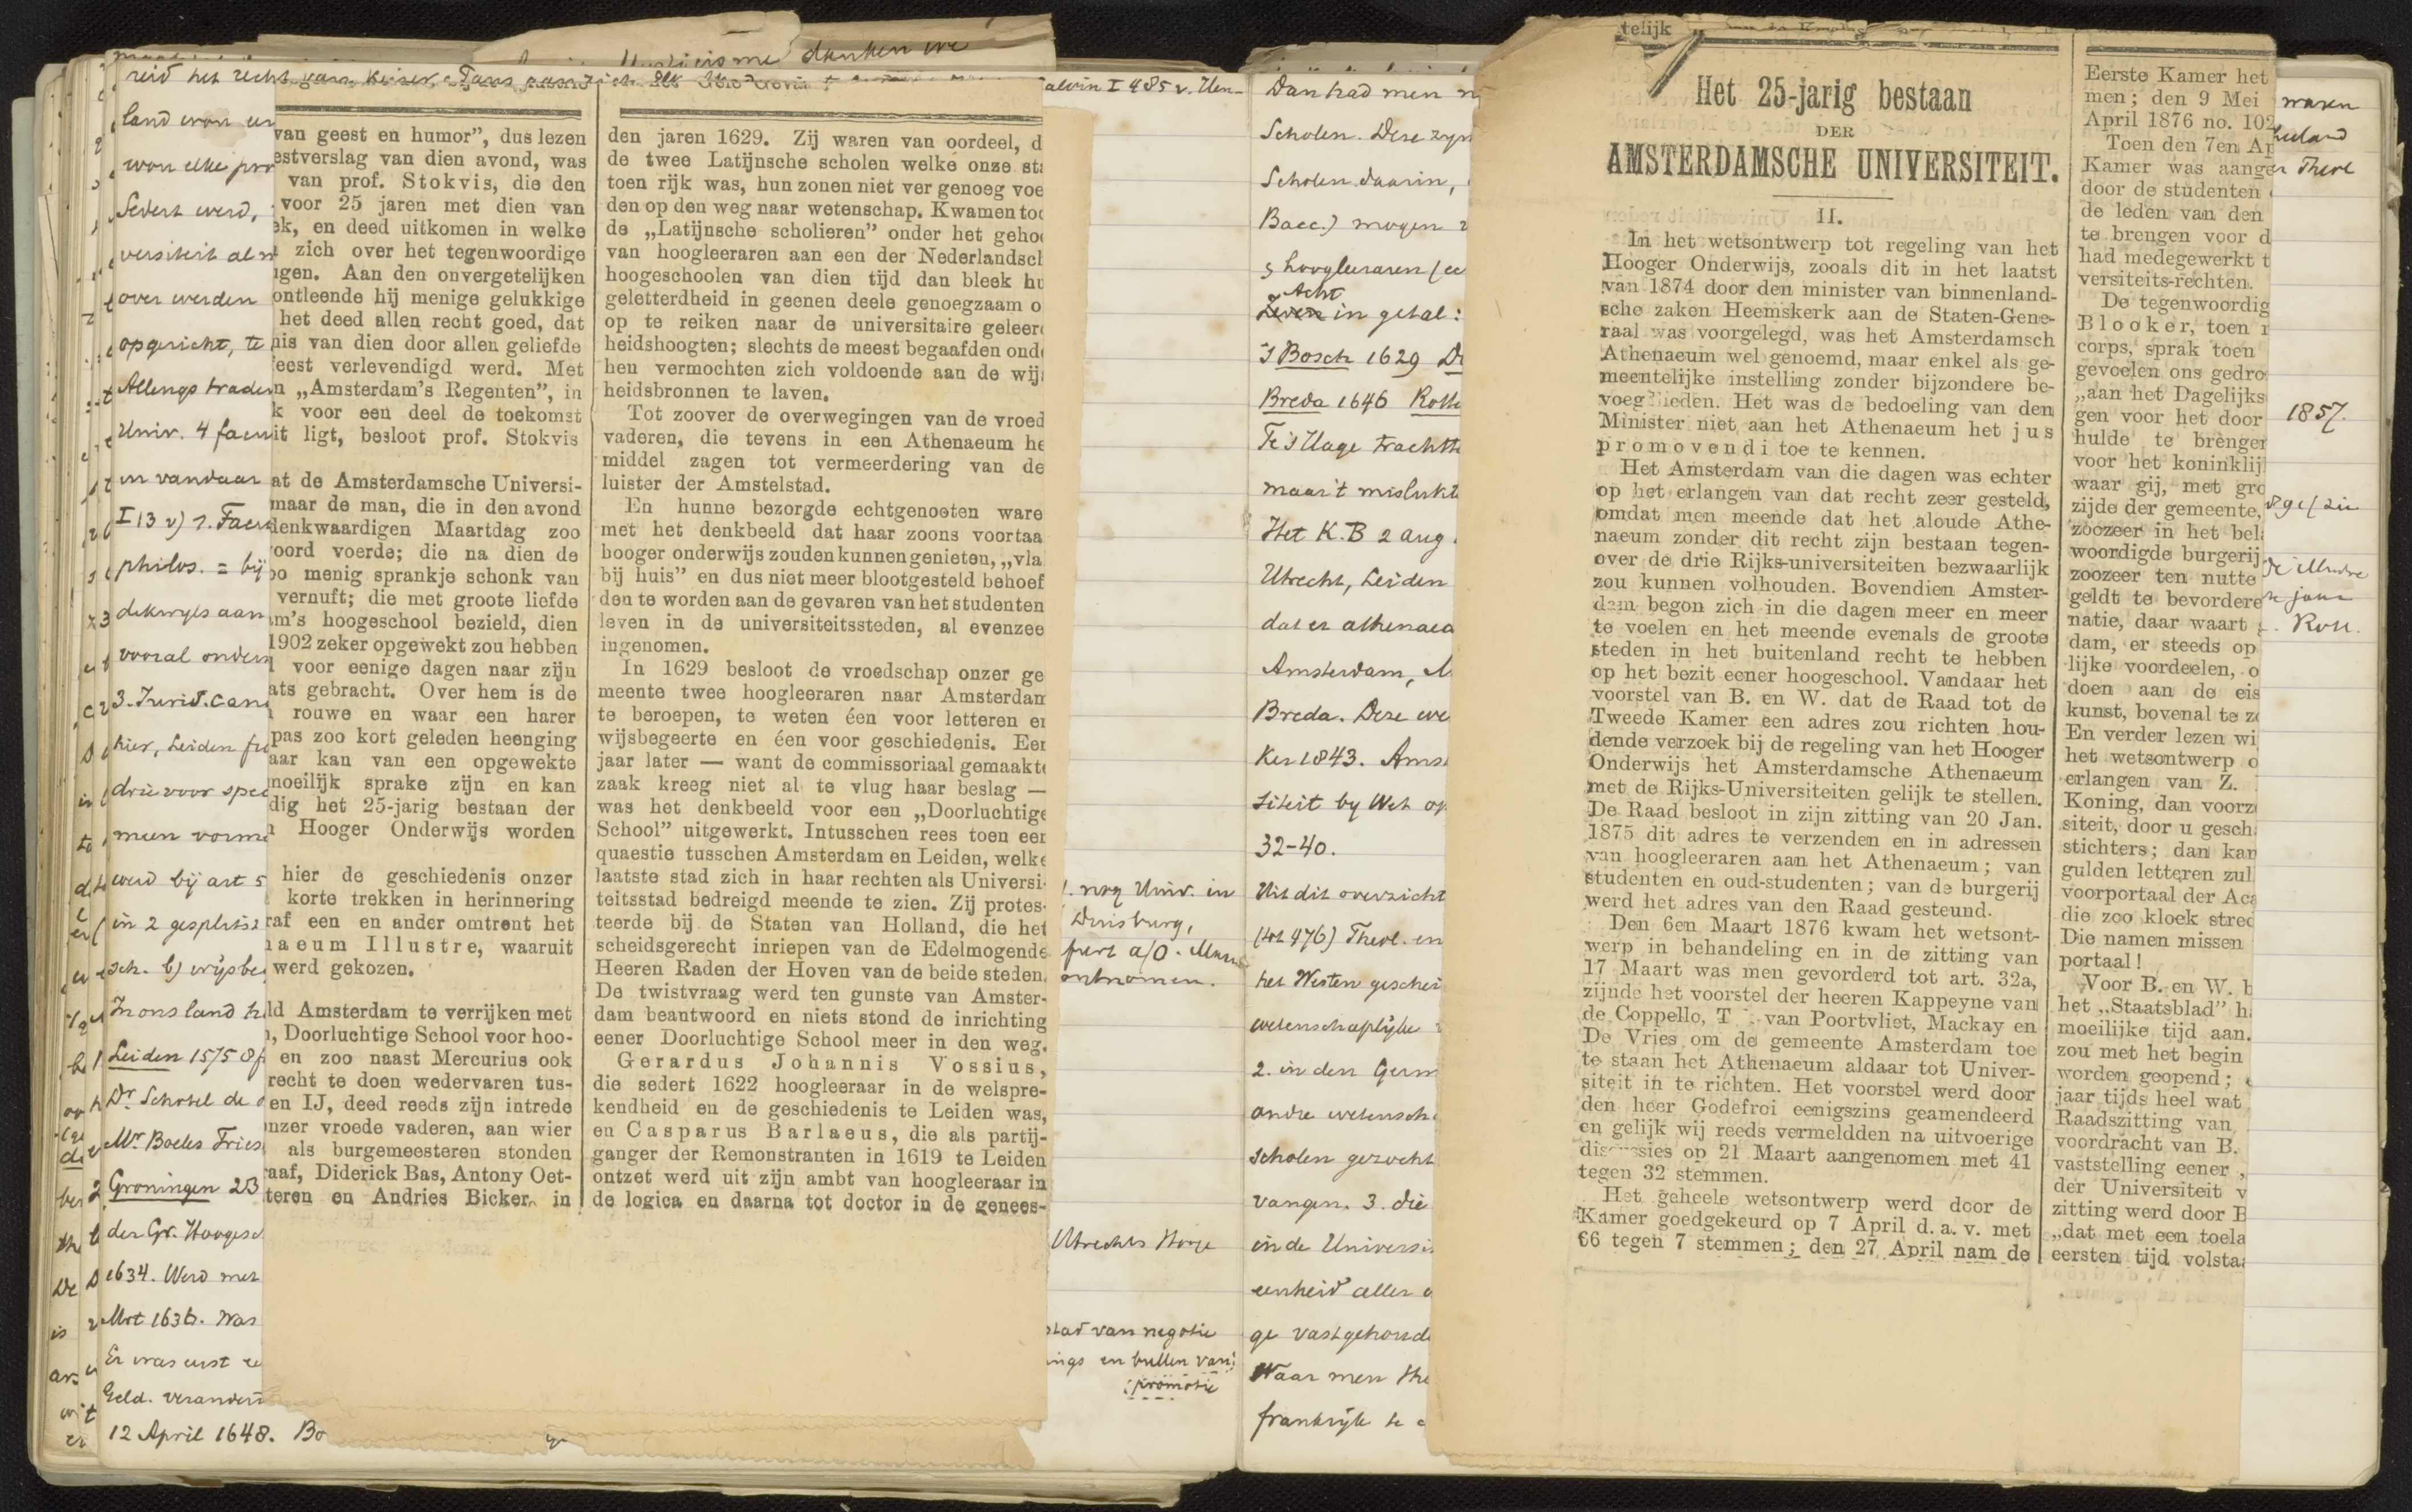 reid het recht
land won een
won elke pro
Sedert werd,
versiteit al n
over werden
opgericht, te
Allengs traden
Univ. 4 facu
in vandaar
I 13 v) 1. Facu
philos. = bij
dikwijls aan
vooral onder
3. Jurid. can
hier, Leiden
drie voor spec
meen vorm
werd bij art 5
in 2 gesplitst
sch. b) wijsbe
In ons land h
Leiden 1575 8 f
Dr. Schotel de
Mr Boeles Fries
Groningen 23
der Gr. Hoogesc
1634. Werd met
Mrt 1636. Was
Er was eerst
Geld. verander
12 April 1648. Bo
van geest en humor”, dus lezen
estverslag van dien avond, was
van prof. Stokvis, die den
voor 25 jaren met dien van
ek, en deed uitkomen in welke
zich over het tegenwoordige
igen. Aan den onvergetelijken
ontleende hij menige gelukkige
het deed allen recht goed, dat
nis van dien door allen geliefde
feest verlevendigd werd. Met
n „Amsterdam’s Regenten”, in
k voor een deel de toekomst
it ligt, besloot prof. Stokvis
at de Amsterdamsche Universi-
maar de man, die in den avond
denkwaardigen Maartdag zoo
oord voerde; die na dien de
oo menig sprankje schonk van
vernuft; die met groote liefde
m’s hoogeschool bezield, dien
1902 zeker opgewekt zou hebben
voor eenige dagen naar zijn
ats gebracht. Over hem is de
rouwe en waar een harer
pas zoo kort geleden heenging
aar kan van een opgewekte
moeilijk sprake zijn en kan
dig het 25-jarig bestaan der
Hooger Onderwijs worden
hier de geschiedenis onzer
korte trekken in herinnering
raf een en ander omtrent het
naeum Illustre, waaruit
werd gekozen.
ld Amsterdam te verrijken met
, Doorluchtige School voor hoo-
en zoo naast Mercurius ook
recht te doen wedervaren tus-
en IJ, deed reeds zijn intrede
nzer vroede vaderen, aan wier
als burgemeesteren stonden
raaf, Diderick Bas, Antony Oet-
teren en Andries Bicker, in
den jaren 1629. Zij waren van oordeel, d
de twee Latijnsche scholen welke onze sta
toen rijk was, hun zonen niet ver genoeg voe
den op den weg naar wetenschap. Kwamen toc
de „Latijnsche scholieren” onder het geho
van hoogleeraren aan een der Nederlandsch
hoogescholen van dien tijd dan bleek hu
geletterdheid in geenen deele genoegzaam o
op te reiken naar de universitaire geleer
heidshoogten; slechts de meest begaafden ond
hen vermochten zich voldoende aan de wijs
heidsbronnen te laven.
Tot zoover de overwegingen van de vroed
vaderen, die tevens in een Athenaeum he
middel zagen tot vermeerdering van de
luister der Amstelstad.
En hunne bezorgde echtgenooten ware
met het denkbeeld dat haar zoons voortaa
hooger onderwijs zouden kunnen genieten, „vla
bij huis” en dus niet meer blootgesteld behoef
den te worden aan de gevaren van het studenten
leven in de universiteitssteden, al evenzee
ingenomen.
In 1629 besloot de vroedschap onzer ge
meente twee hoogleeraren naar Amsterdam
te beroepen, te weten één voor letteren en
wijsbegeerte en één voor geschiedenis. Een
jaar later — want de commissoriaal gemaakte
zaak kreeg niet al te vlug haar beslag —
was het denkbeeld voor een „Doorluchtige
School” uitgewerkt. Intusschen rees toen een
quaestie tusschen Amsterdam en Leiden, welke
laatste stad zich in haar rechten als Universi-
teitsstad bedreigd meende te zien. Zij protes-
teerde bij de Staten van Holland, die het
scheidsgerecht inriepen van de Edelmogende
Heeren Raden der Hoven van de beide steden.
De twistvraag werd ten gunste van Amster-
dam beantwoord en niets stond de inrichting
eener Doorluchtige School meer in den weg.
Gerardus Johannis Vossius,
die sedert 1622 hoogleeraar in de welspre-
kendheid en de geschiedenis te Leiden was,
en Casparus Barlaeus, die als partij-
ganger der Remonstranten in 1619 te Leiden
ontzet werd uit zijn ambt van hoogleeraar in
de logica en daarna tot doctor in de genees-
alvin I 485 v. Uen-
nog Univ. in
Duisburg,
furt a/O.
ontnomen.
Utrechts Hooge
stad van negotie
ings en bullen van
promotie
Dan had men n
Scholen. Deze zijn
Scholen daarin,
Bacc.) mogen
5 hoogleeraren
Acht
Zeven in getal:
's Bosch 1629 D
Breda 1646 Rott
Te 's Hage tracht
maar 't mislukt
Het K.B 2 aug
Utrecht, Leiden
dat er athenaea
Amsterdam,
Breda. Deze we
Ker 1843. Ams
siteit by Wet op
32-40.
Uit dit overzicht
(tot 476) Theol. en
het Westen geschei
wetenschaplijke
2. in den Germ
andre wetensch
scholen gezocht
vangen. 3. die
in de Universi
eenheid aller
ge vastgehoude
Waar men the
frankrijk te
telijk
Het 25-jarig bestaan
DER
AMSTERDAMSCHE UNIVERSITEIT.
II.
In het wetsontwerp tot regeling van het
Hooger Onderwijs, zooals dit in het laatst
van 1874 door den minister van binnenland-
sche zaken Heemskerk aan de Staten-Gene-
raal was voorgelegd, was het Amsterdamsch
Athenaeum wel genoemd, maar enkel als ge-
meentelijke instelling zonder bijzondere be-
voegdheden. Het was de bedoeling van den
Minister niet aan het Athenaeum het jus
promovendi toe te kennen.
Het Amsterdam van die dagen was echter
op het erlangen van dat recht zeer gesteld,
omdat men meende dat het aloude Athe-
naeum zonder dit recht zijn bestaan tegen-
over de drie Rijks-universiteiten bezwaarlijk
zou kunnen volhouden. Bovendien Amster-
dam begon zich in die dagen meer en meer
te voelen en het meende evenals de groote
steden in het buitenland recht te hebben
op het bezit eener hoogeschool. Vandaar het
voorstel van B. en W. dat de Raad tot de
Tweede Kamer een adres zou richten hou-
dende verzoek bij de regeling van het Hooger
Onderwijs het Amsterdamsche Athenaeum
met de Rijks-Universiteiten gelijk te stellen.
De Raad besloot in zijn zitting van 20 Jan.
1875 dit adres te verzenden en in adressen
van hoogleeraren aan het Athenaeum; van
studenten en oud-studenten; van de burgerij
werd het adres van den Raad gesteund.
Den 6en Maart 1876 kwam het wetsont-
werp in behandeling en in de zitting van
17 Maart was men gevorderd tot art. 32a,
zijnde het voorstel der heeren Kappeyne van
de Coppello, T van Poortvliet, Mackay en
De Vries om de gemeente Amsterdam toe
te staan het Athenaeum aldaar tot Univer-
siteit in te richten. Het voorstel werd door
den heer Godefroi eenigszins geamendeerd
en gelijk wij reeds vermeldden na uitvoerige
discussies op 21 Maart aangenomen met 41
tegen 32 stemmen.
Het geheele wetsontwerp werd door de
Kamer goedgekeurd op 7 April d. a. v. met
66 tegen 7 stemmen; den 27 April nam de
Eerste Kamer het
men; den 9 Mei
April 1876 no. 102
Toen den 7en Ap
Kamer was aange
door de studenten
de leden van den
te brengen voor d
had medegewerkt t
versiteits-rechten.
De tegenwoordig
Blooker, toen
corps, sprak toen
gevoelen ons gedro
„aan het Dagelijks
gen voor het door
hulde te brengen
voor het koninklij
waar gij, met gro
zijde der gemeente,
zoozeer in het bel
woordigde burgerij
zoozeer ten nutte
geldt te bevordere
natie, daar waart
dam, er steeds op
lijke voordeelen, o
doen aan de eis
kunst, bovenal te z
En verder lezen wi
het wetsontwerp o
erlangen van Z.
Koning, dan voorz
siteit, door u gesch
stichters; dan kan
gulden letteren zul
voorportaal der Aca
die zoo kloek stred
Die namen missen
portaal!
Voor B. en W. b
het „Staatsblad” h
moeilijke tijd aan.
zou met het begin
worden geopend;
jaar tijds heel wat
Raadszitting van
voordracht van B.
vaststelling eener
der Universiteit v
zitting werd door B
„dat met een toela
eersten tijd volsta
waren
Theol
1857.
Rott.